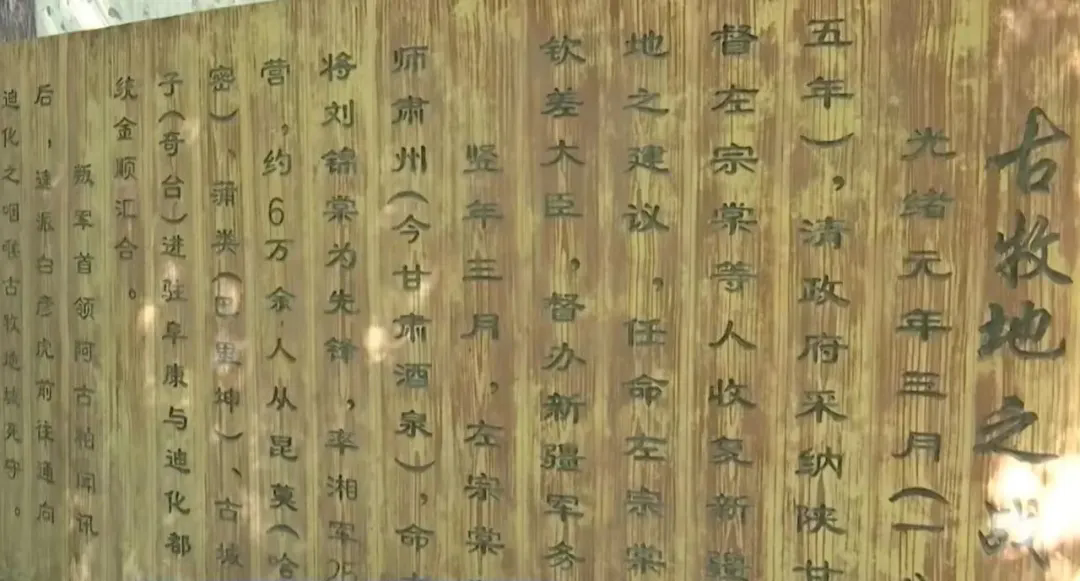 古牧地之战
光绪元年三月（一
五年），清政府采纳陕甘
督左宗棠等人收复新疆
地之建议，任命左宗棠
钦差大臣，督办新疆军务
竖年三月，左宗棠
师肃州（今甘肃酒泉），命
将刘锦棠为先锋，率湘军25
营，约6万余人从昆莫（哈
密）、蒲类（巴里坤）、古城
子（奇台）进驻阜康与迪化都
统金顺汇合。
叛军首领阿古柏闻讯
后，速派白彦虎前往通向
迪化之咽喉古牧地城死守。